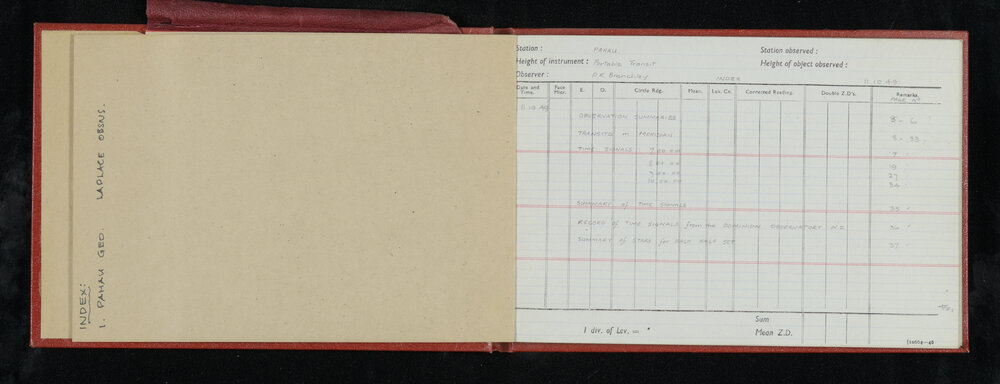 INDEX:
1. PAHAU GEO. LAPLACE OBSNS.
Station : PAHAU Station observed :
Height of instrument : Portable Transit Height of object observed :
Observer : INDEX 11.10.49
Date and Time. Face Micr. E. O. Circle Rdg. Mean. Lev. Cn. Corrected Reading. Double Z.D's. Remarks.
PAGE No
11.10.49
OBSERVATION SUMMARIES
TRANSITS in MERIDIAN
TIME SIGNALS 7.00.00
8.00.00 19
9.00.00 27
10.00.00 34
SUMMARY of TIME SIGNALS 35
RECORD of TIME SIGNALS from the DOMINION OBSERVATORY N Z 36
SUMMARY of STARS for EACH HALF SET 37
Sum
1 div. of Lev. = " Mean Z.D.